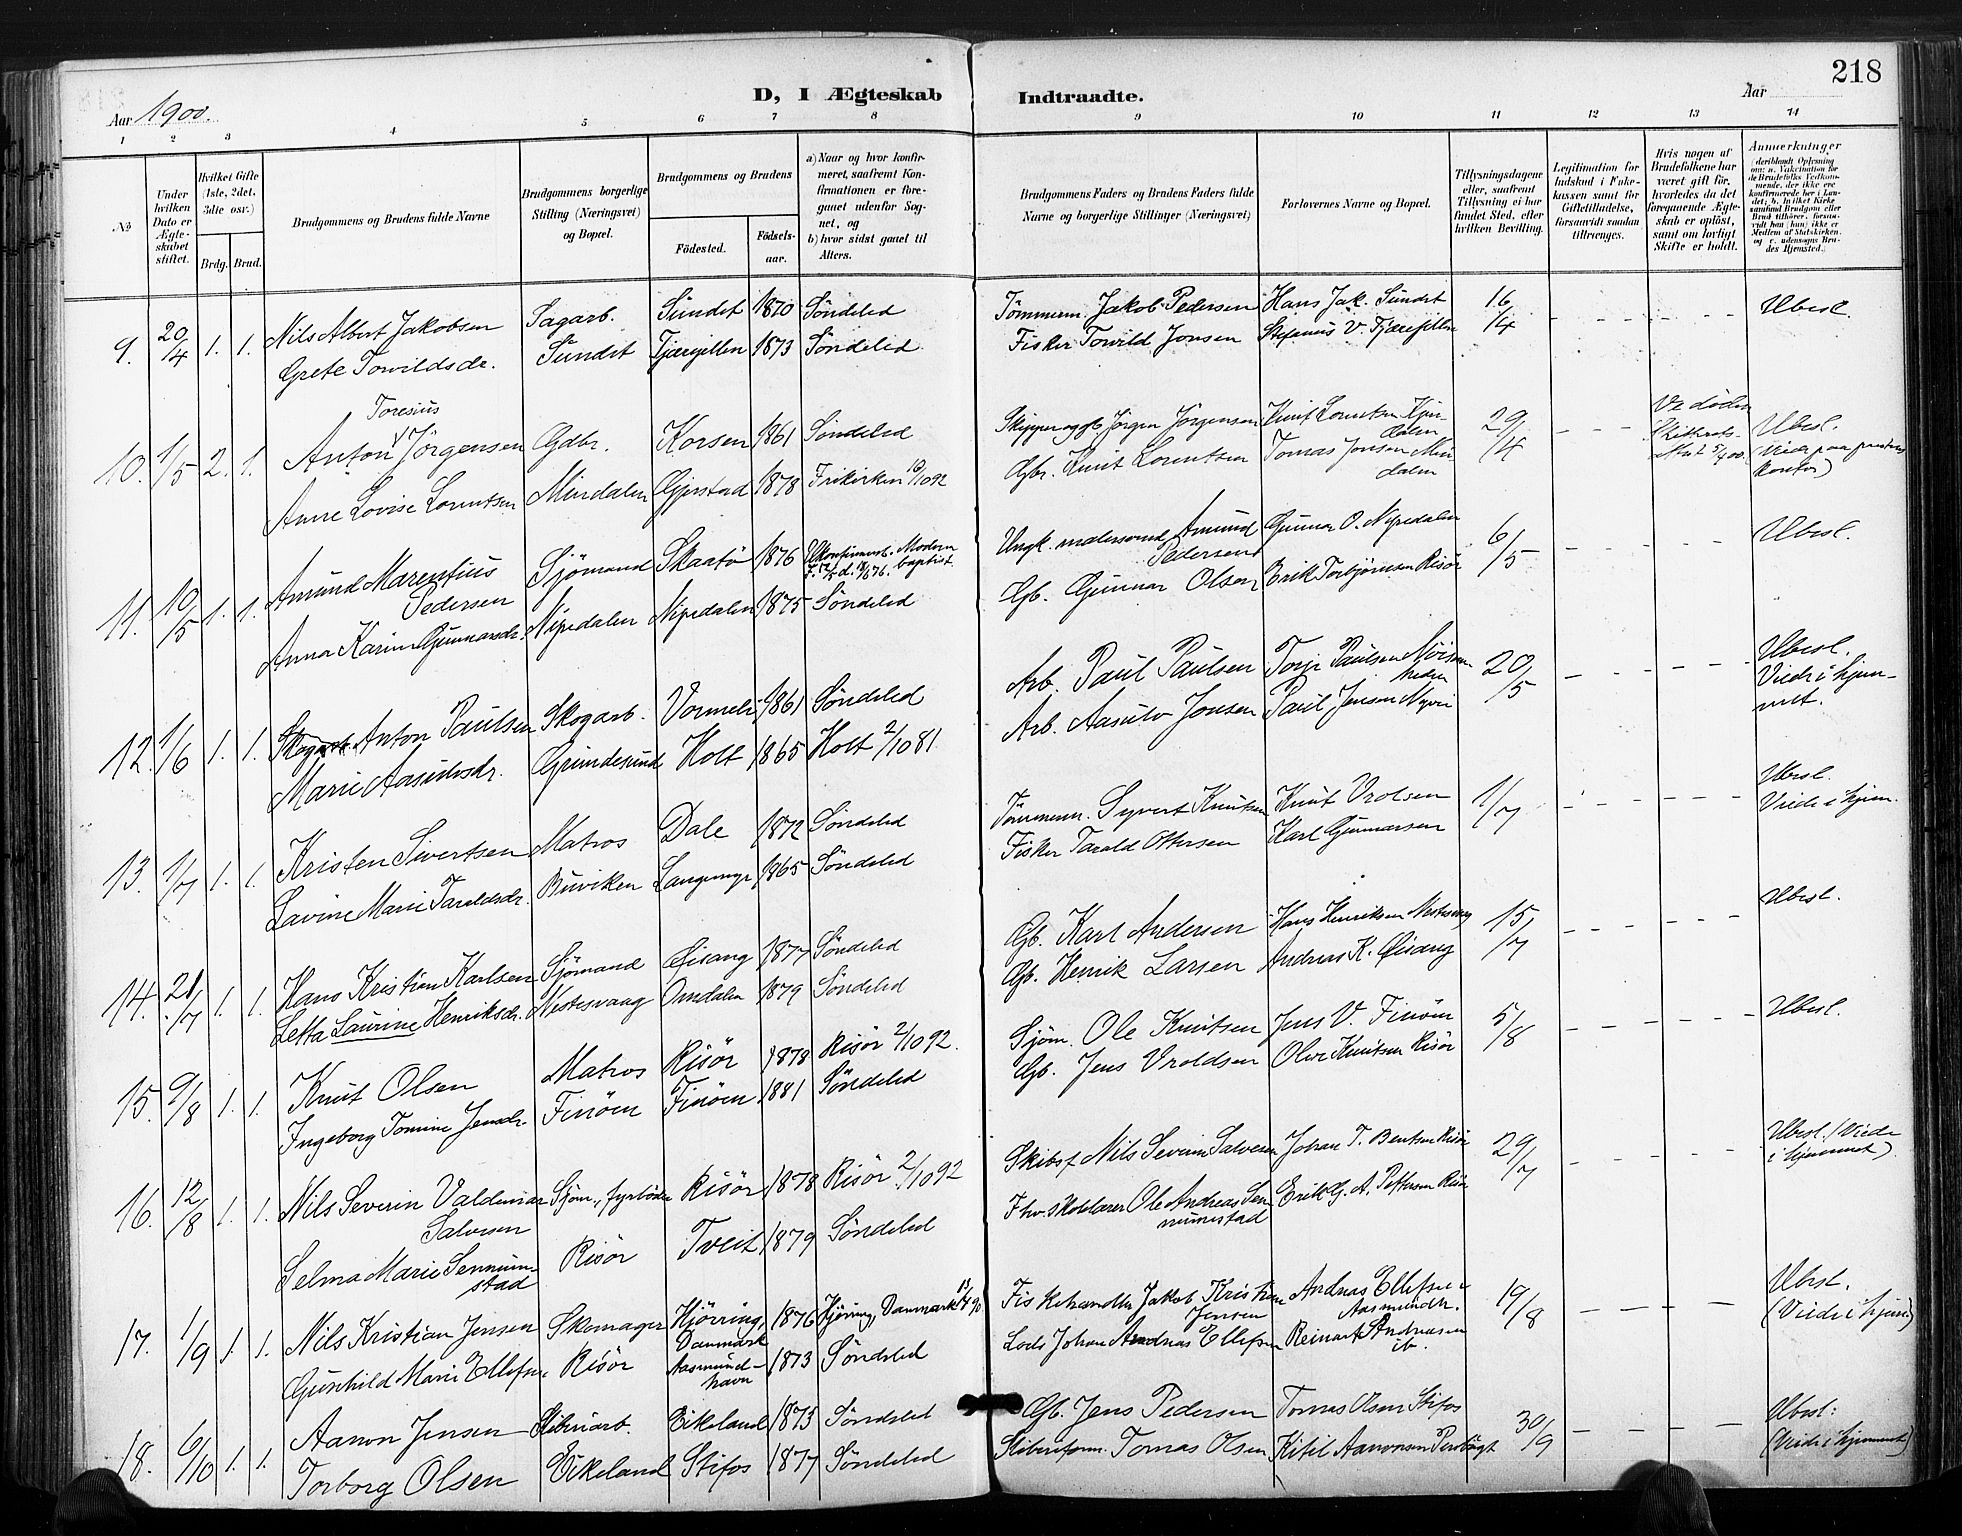 218
D, I Ægteskab Indtraadte.
Aar 1900. Aar
1 2 3 4 5 6 7 8 9 10 11 12 13 14
№
Under hvilken Dato er Ægteskabet stiftet.
Hvilket Gifte (1ste, 2det, 3die osv.)
Brdg. Brud.
Brudgommens og Brudens fulde Navne
Brudgommens borgerlige Stilling (Næringsvei) og Bopæl.
Brudgommens og Brudens
Födested. Födselsaar.
a) Naar og hvor konfirmeret, saafremt Konfirmationen er foreganet udenfor Sognet, og
b) hvor sidst gaaet til Alters.
Brudgommens Faders og Brudens Faders fulde Navne og borgerlige Stillinger (Næringsvei)
Forlovernes Navne og Bopæl.
Tillysningsdagene eller, saafremt Tillysning ei har fundet Sted, efter hvilken Bevilling.
Legitimation for Indskud i Enkekassen samt for Giftetilladelse, forsaavidt saadan tiltrænges.
Hvis nogen af Brudefolkene har været gift för, hvorledes da det foregaaende Ægteskab er oplöst, samt om lovligt Skifte er holdt.
Anmerkninger
9. 20/4 1. 1. Nils Albert Jakobsen Sagarb. Sundet 1870 Søndeled Tömmerm. Jakob Pedersen Hans Jak. Sundet 16/4 - - - - - Ubesl.
Grete Torvildsdr. Sundet Tjærefillen 1873 Søndeled. Fisker Torvild Jonsen Stefanus V. Tjærefillen
Toresius
10. 1/5 2. 1. Anton Jörgensen Gdbr. Korsen 1861 Søndeled Skipper og gb. Jörgen Jörgensen Knut Lorentsen Mindalen 29/4 - - - Ved døden Ubesl.
Anne Lovise Lorentsen Mindalen Gjerstad 1878 Frikirken /10 92 Gbr. Knut Lorentsen Tomas Jonsen Mindalen (Viede paa prestens kontor)
11. 10/5 1. 1. Amund Marentius Pedersen Sjömand Skaatø 1876 Ukonfirmert. baptist. Ungk. matros Amund Pedersen Gunnar O. Nipedalen 6/5 - - - - Ubesl.
Anna Karine Gunnarsdr. Nipedalen Nipedalen 1875 Søndeled Gb. Gunnar Olsen Erik Torbjørnsen Risør
12. 1/6 1. 1. Anton Paulsen Skogarb. Vormeli 1861 Søndeled Arb. Paul Paulsen Terje Paulsen 20/5 - - - - Ubesl.
Marie Aasulvsdr. Grundesund Holt 1865 Holt 2/10 81 Arb. Aasulv Jonsen Paul Jensen Myren Viede i hjemmet.
13. 1/7 1. 1. Kristen Sivertsen Matros Dale 1872 Søndeled Tömmerm. Syvert Knutsen Knut Vrolsen 1/7 - - - - Ubesl.
Lavine Marie Taraldsdr. Buviken Langemyr 1865 Søndeled Fisker Tarald Ottersen Karl Gunnarsen Viede i hjem.
14. 21/7 1. 1. Hans Kristian Karlsen Sjömand Øisang 1877 Søndeled Gb. Karl Andersen Hans Henriksen Nestesvaag 15/7 - - - - Ubesl.
Letta Laurine Henriksdr. Nestesvaag Omdalen 1879 Søndeled Gb. Henrik Larsen Andreas K. Øisang
15. 9/8 1. 1. Knut Olsen Matros Risör 1878 Risör 2/10 92. Sjöm. Ole Knutsen Jens V. Finöen 5/8 - - - - Ubesl.
Ingeborg Tomine Jensdr. Finöen Finöen 1881 Søndeled Gb. Jens Vroldsen Olve Knutsen Risör
16. 12/8 1. 1. Nils Severin Valdemar Salvesen Sjöm., fyrböder Risör 1878 Risör 2/10 92 Skibsf. Nils Severin Salvesen Johan T. Bentsen Risör 29/7 - - - - Ubesl. (Viede i hjemmet)
Selma Marie Sennumstad Risör Tveit 1879 Søndeled Fhv. skolelærer Ole Andreas Sennumstad Erik G. A. Pettersen Risör
17. 1/9 1. 1. Nils Kristian Jensen Skomager Hjörring, Danmark 1876 Hjöring, Danmark 13/4 90 Fiskehandler Jakob Kristian Jensen Andreas Ellefsen Aasmundh. 19/8 - - - - Ubesl.
Gunhild Marie Ellefsen Risör Aasmundhavn 1873 Søndeled Lods Johan Andreas Ellefsen Reinart Andreasen ib. (Viede i hjem)
18. 6/10 1. 1. Aanon Jensen Gruberarb. Eikeland 1875 Søndeled Gb. Jens Pedersen Tomas Olsen Stifos 30/9 - - - - Ubesl:
Torborg Olsen Eikeland Stifos 1877 Søndeled Tomas Olsen Kitil Aanonsen (Viede i hjemmet)